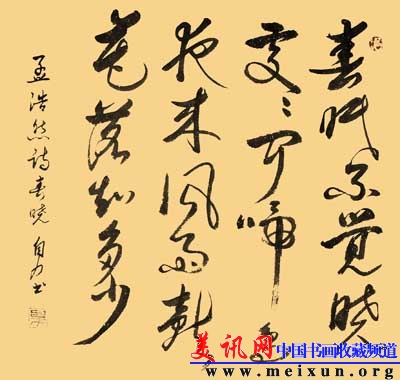 春眠不覺曉
處々聞啼鳥
夜来風雨聲
花落知多少
孟浩然詩春曉 自力书
美讯网 中国书画收藏频道
www.meixun.org